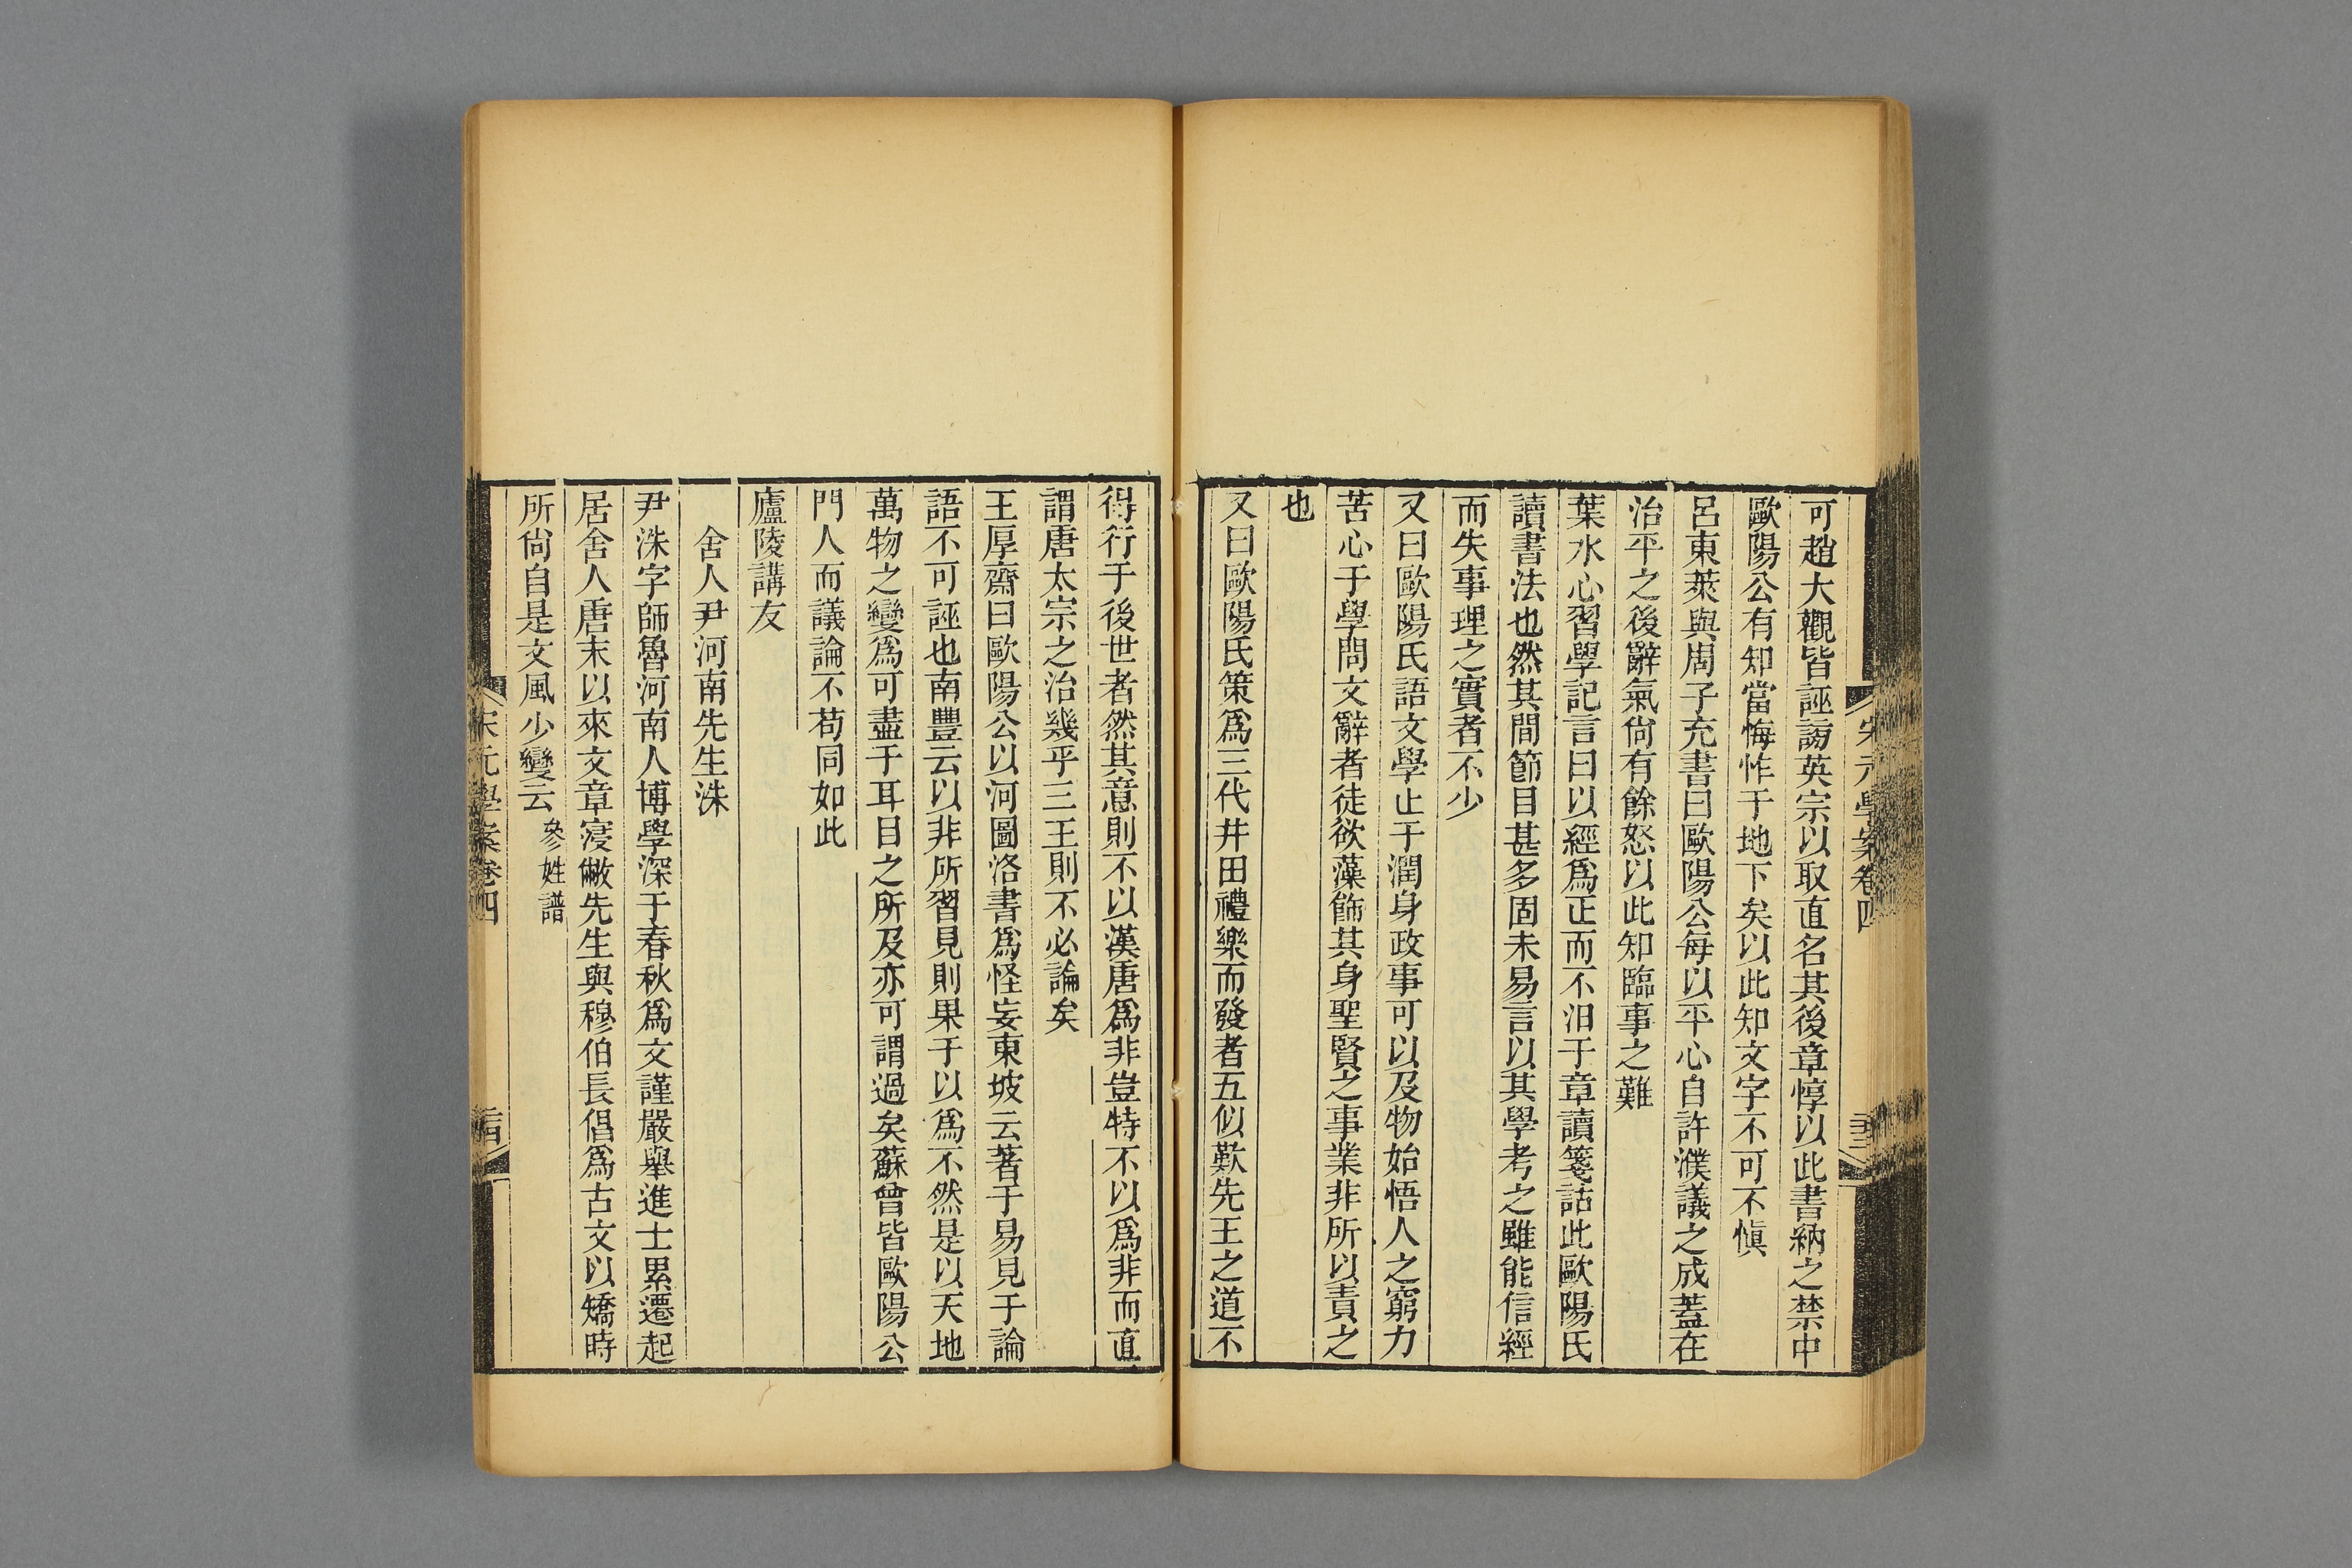 宋元學案卷四
可趙大觀皆誣謗英宗以取直名其後章惇以此書納之禁中
歐陽公有知當悔怍于地下矣以此知文字不可不愼
呂東萊與周子充書曰歐陽公每以平心自許濮議之成蓋在
治平之後辭氣尙有餘怒以此知臨事之難
葉水心習學記言曰以經爲正而不汨于章讀箋詁此歐陽氏
讀書法也然其間節目甚多固未易言以其學考之雖能信經
而失事理之實者不少
又曰歐陽氏語文學止于潤身政事可以及物始悟人之窮力
苦心于學問文辭者徒欲藻飾其身聖賢之事業非所以責之
也
又曰歐陽氏策爲三代井田禮樂而發者五似歎先王之道不
得行于後世者然其意則不以漢唐爲非豈特不以爲非而直
謂唐太宗之治幾乎三王則不必論矣
王厚齋曰歐陽公以河圖洛書爲怪妄東坡云著于易見于論
語不可誣也南豐云以非所習見則果于以爲不然是以天地
萬物之變爲可盡于耳目之所及亦可謂過矣蘇曾皆歐陽公
門人而議論不苟同如此
廬陵講友
舍人尹河南先生洙
尹洙字師魯河南人博學深于春秋爲文謹嚴舉進士累遷起
居舍人唐末以來文章寖敝先生與穆伯長倡爲古文以矯時
所尙自是文風少變云參姓譜
宋元學案卷四